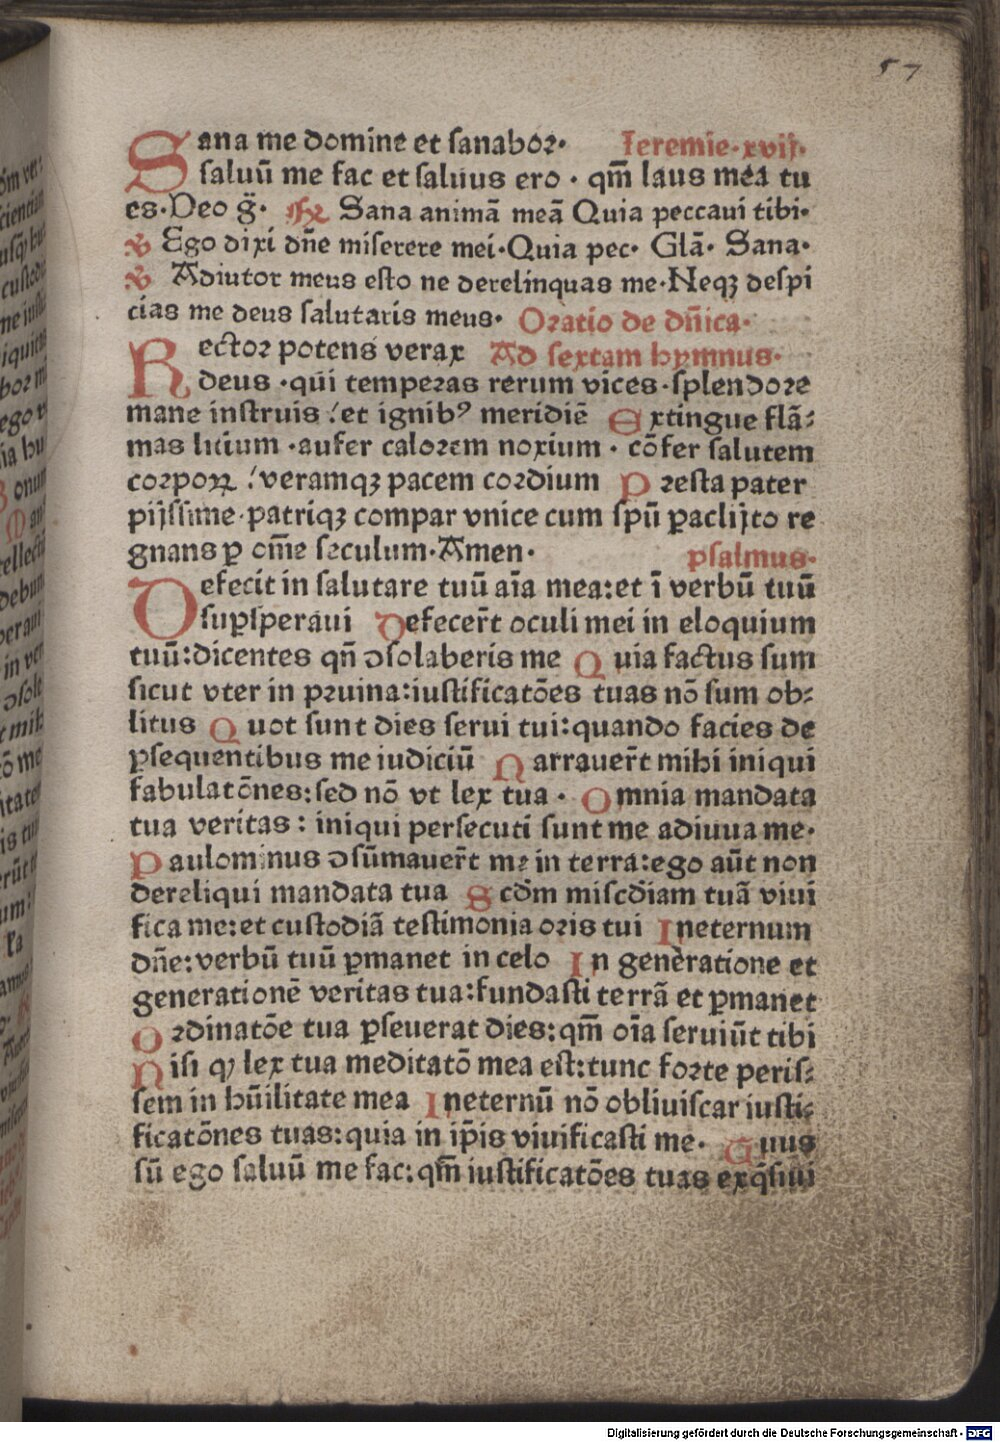 57
Sana me domine et sanabor· Ieremie·xvij·
saluū me fac et saluus ero · qm̄ laus mea tu
es·Deo g̃· Sana animā meā Quia peccaui tibi·
℣ Ego dixi dn̄e miserere mei·Quia pec· Glā· Sana·
℣ Adiutor meus esto ne derelinquas me·Neqꝫ despi
cias me deus salutaris meus· Oratio de dn̄ica·
Rector potens verax Ad sextam hymnus·
deus ·qui temperas rerum vices·splendore
mane instruis :et ignibꝰ meridiē Extingue flā⸗
mas litium ·aufer calorem noxium · cōfer salutem
corpoꝝ :veramqꝫ pacem cordium Presta pater
pijssime·patriqꝫ compar vnice cum spū paclijto re
gnans ꝑ om̄e seculum·Amen· psalmus·
Defecit in salutare tuū aīa mea:et ī verbū tuū
suꝑsperaui Defecer̄t oculi mei in eloquium
tuū:dicentes qn̄ ↄsolaberis me Quia factus sum
sicut vter in pruina:iustificatōes tuas nō sum ob⸗
litus Quot sunt dies serui tui:quando facies de
ꝑsequentibus me iudiciū Narrauer̄t mihi iniqui
fabulatōnes:sed nō vt lex tua · Omnia mandata
tua veritas : iniqui persecuti sunt me adiuua me·
Paulominus ↄsūmauer̄t me in terra:ego aūt non
dereliqui mandata tua Scdm̄ miscdiam tuā viui
fica me:et custodiā testimonia oris tui Ineternum
dn̄e:verbū tuū ꝑmanet in celo In generatione et
generationē veritas tua:fundasti terrā et ꝑmanet
Ordinatōe tua ꝑseuerat dies:qm̄ oīa seruiūt tibi
Nisi ꝙ lex tua meditatō mea est:tunc forte peris⸗
sem in hūilitate mea Ineternū nō obliuiscar iusti⸗
ficatōnes tuas:quia in ip̄is viuificasti me· Tuus
sū ego saluū me fac:qm̄ iustificatōes tuas exq̄siui
Digitalisierung gefördert durch die Deutsche Forschungsgemeinschaft - DFG